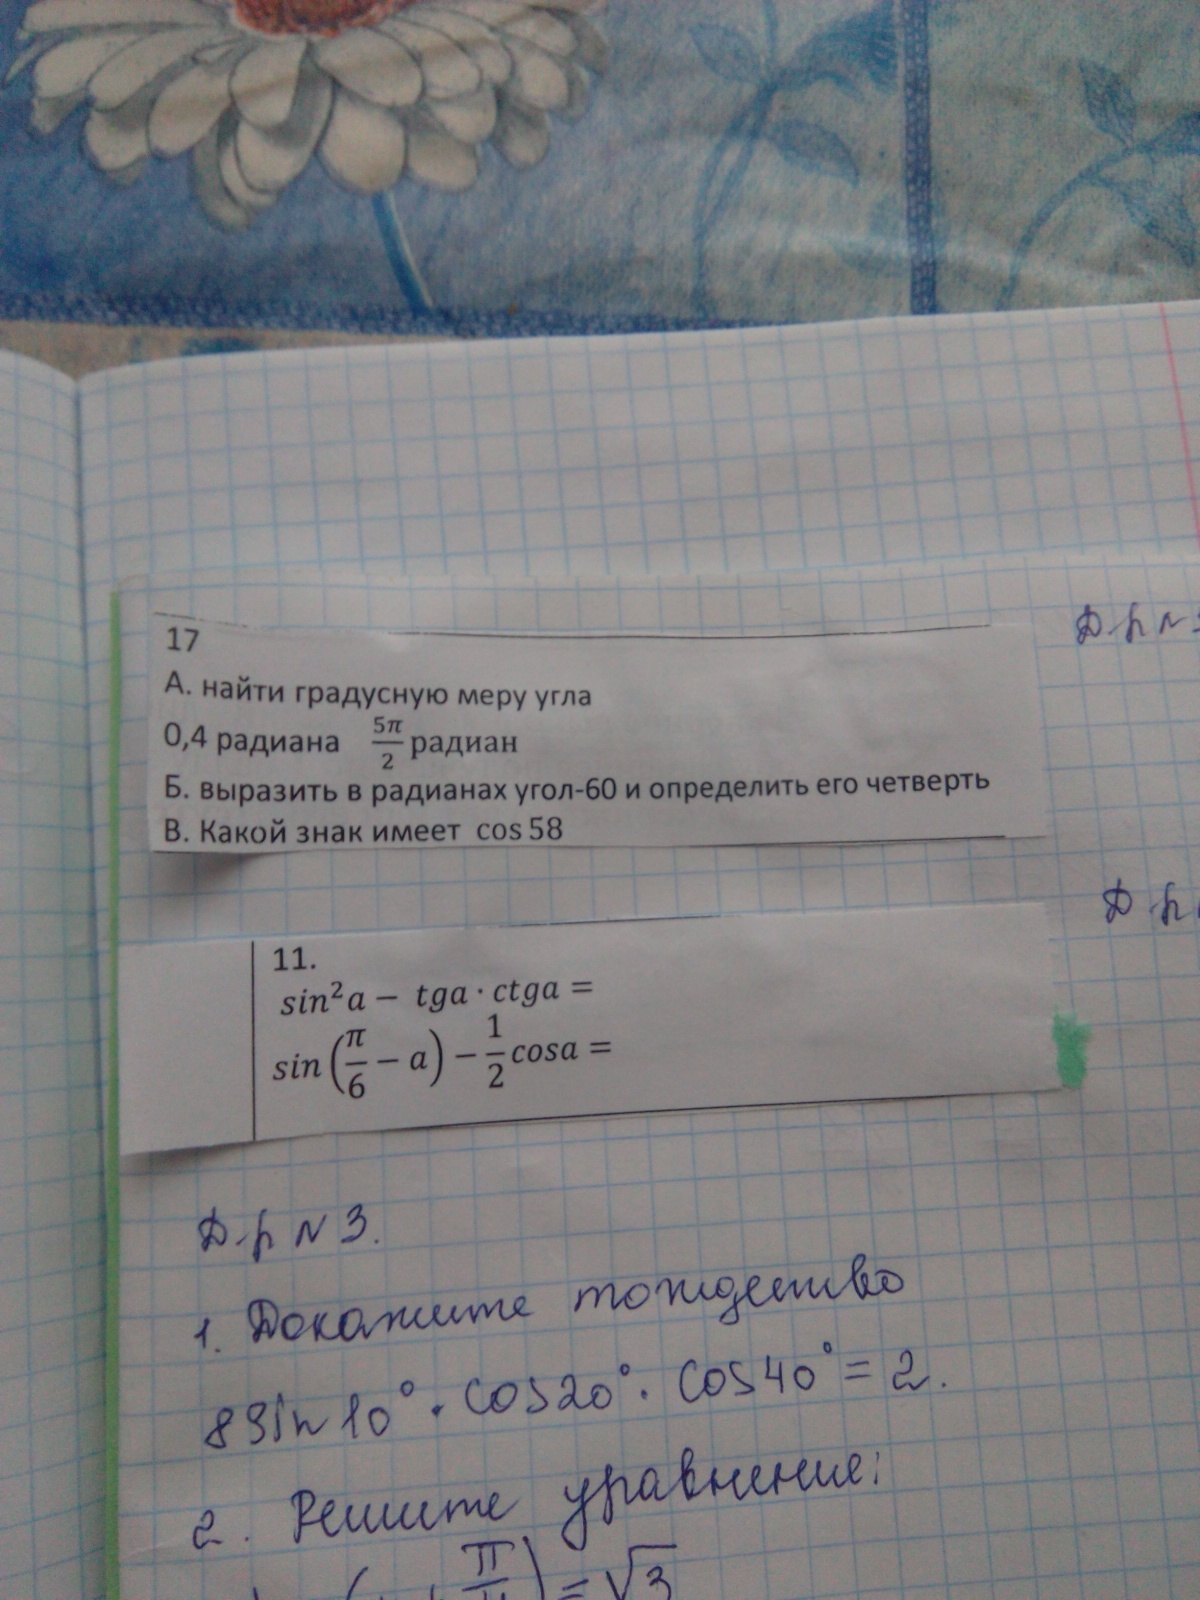 17
А. найти градусную меру угла
0,4 радиана 5π/2 радиан
Б. выразить в радианах угол-60 и определить его четверть
В. Какой знак имеет cos 58
Д р №
11.
sin²a − tga · ctga =
sin(π/6 − a) − 1/2 cosa =
Д р
Д.р № 3.
1. Докажите тождество
8 Sin 10° · COS20° · COS40° = 2.
2. Решите уравнение:
π ) = √3